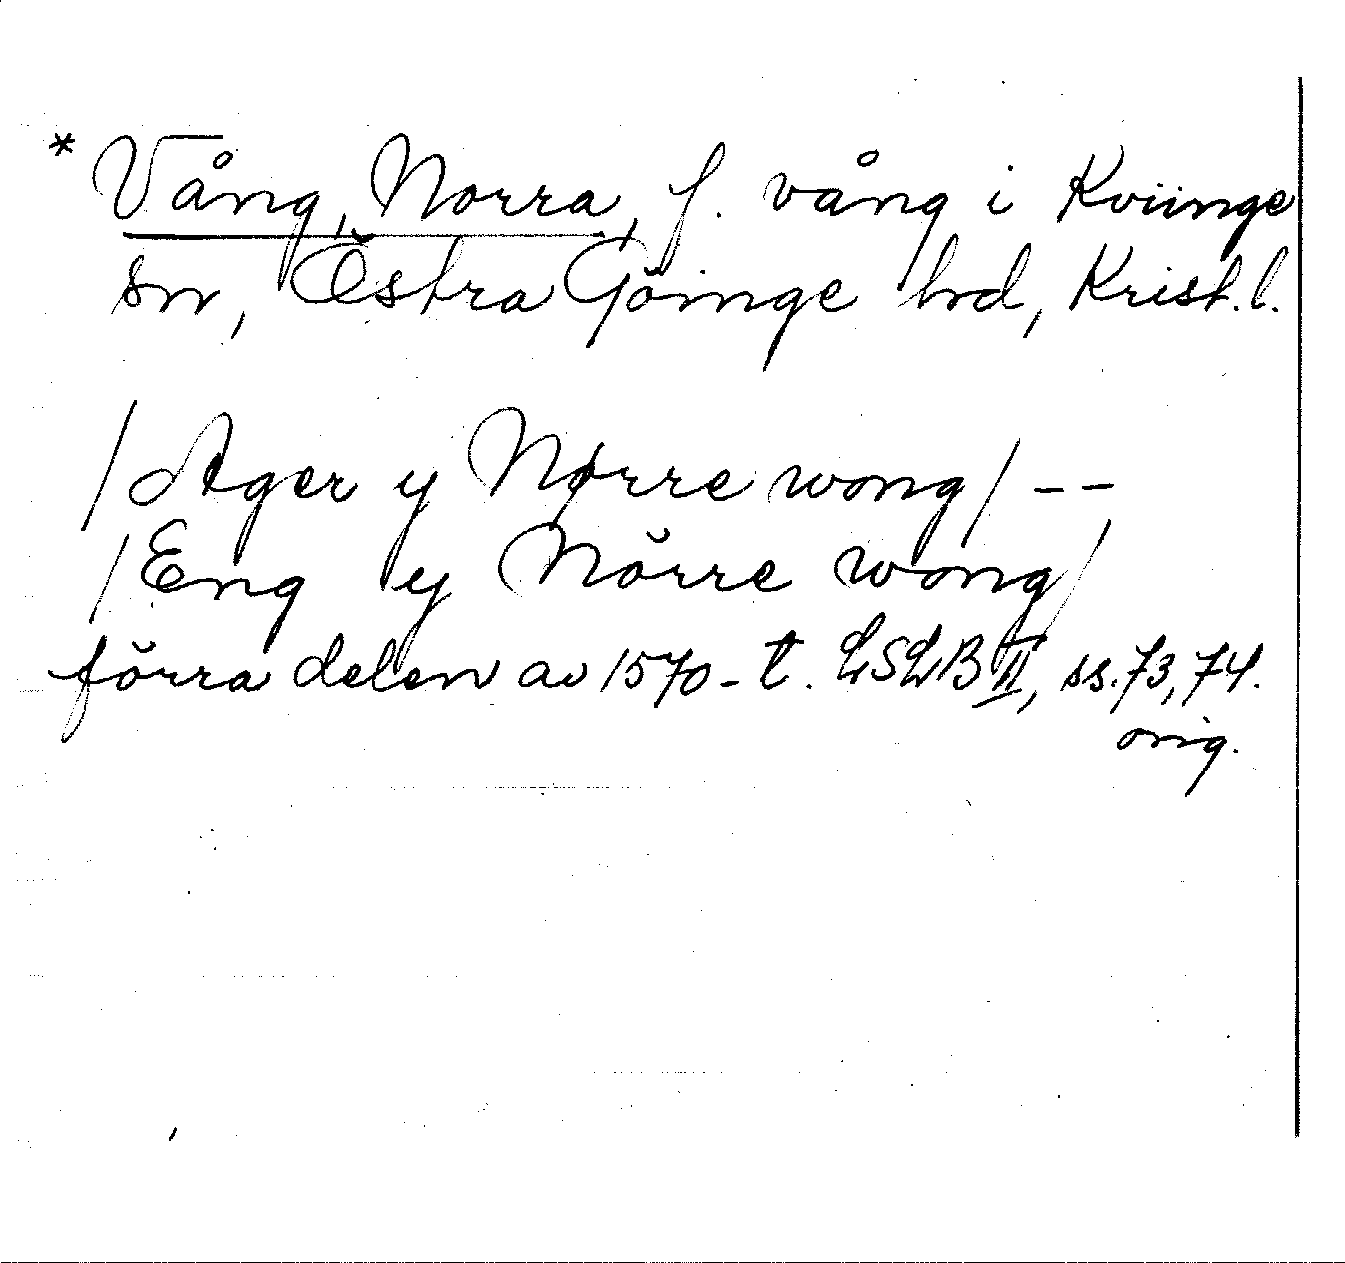 * Vång, Norra, f. vång i Kviinge
sn, Östra Göinge hd, Krist. l.
/Ager y Nørre wong/ --
/Eng y Nörre wong/
förra delen av 1570-t. LSLB II, ss. 73, 74.
orig.